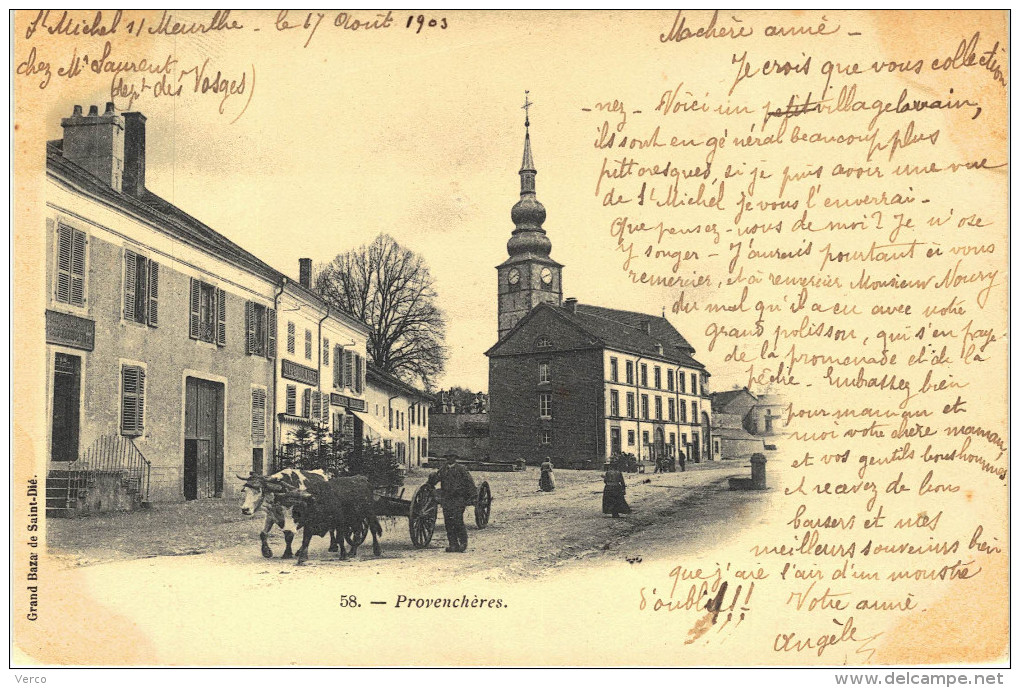 St Michel s/ Meurthe - le 17 Août 1903
chez Mr Laurent
(dept des Vosges)
Machère amie -
Je crois que vous collection
-nez - Voici un petit village lorrain,
ils sont en général beaucoup plus
pittoresques, si je puis avoir une vue
de St Michel, je vous l'enverrai -
Que pensez-vous de moi? Je n'ose
y songer - J'aurais pourtant à vous
remercier, et à remercier Monsieur Noury
du mal qu'il a eu avec votre
grand polisson, qui s'en paye
de la promenade et de la
pêche - Embrassez bien
pour maman et
moi votre chère maman,
et vos gentils boushommes
et recevez de bons
baisers et mes
meilleurs souvenirs bien
que j'aie l'air d'un monstre
d'oubli!!! Votre amie
Angèle
Grand Bazar de Saint-Dié.
58. — Provenchères.
Verco
www.delcampe.net